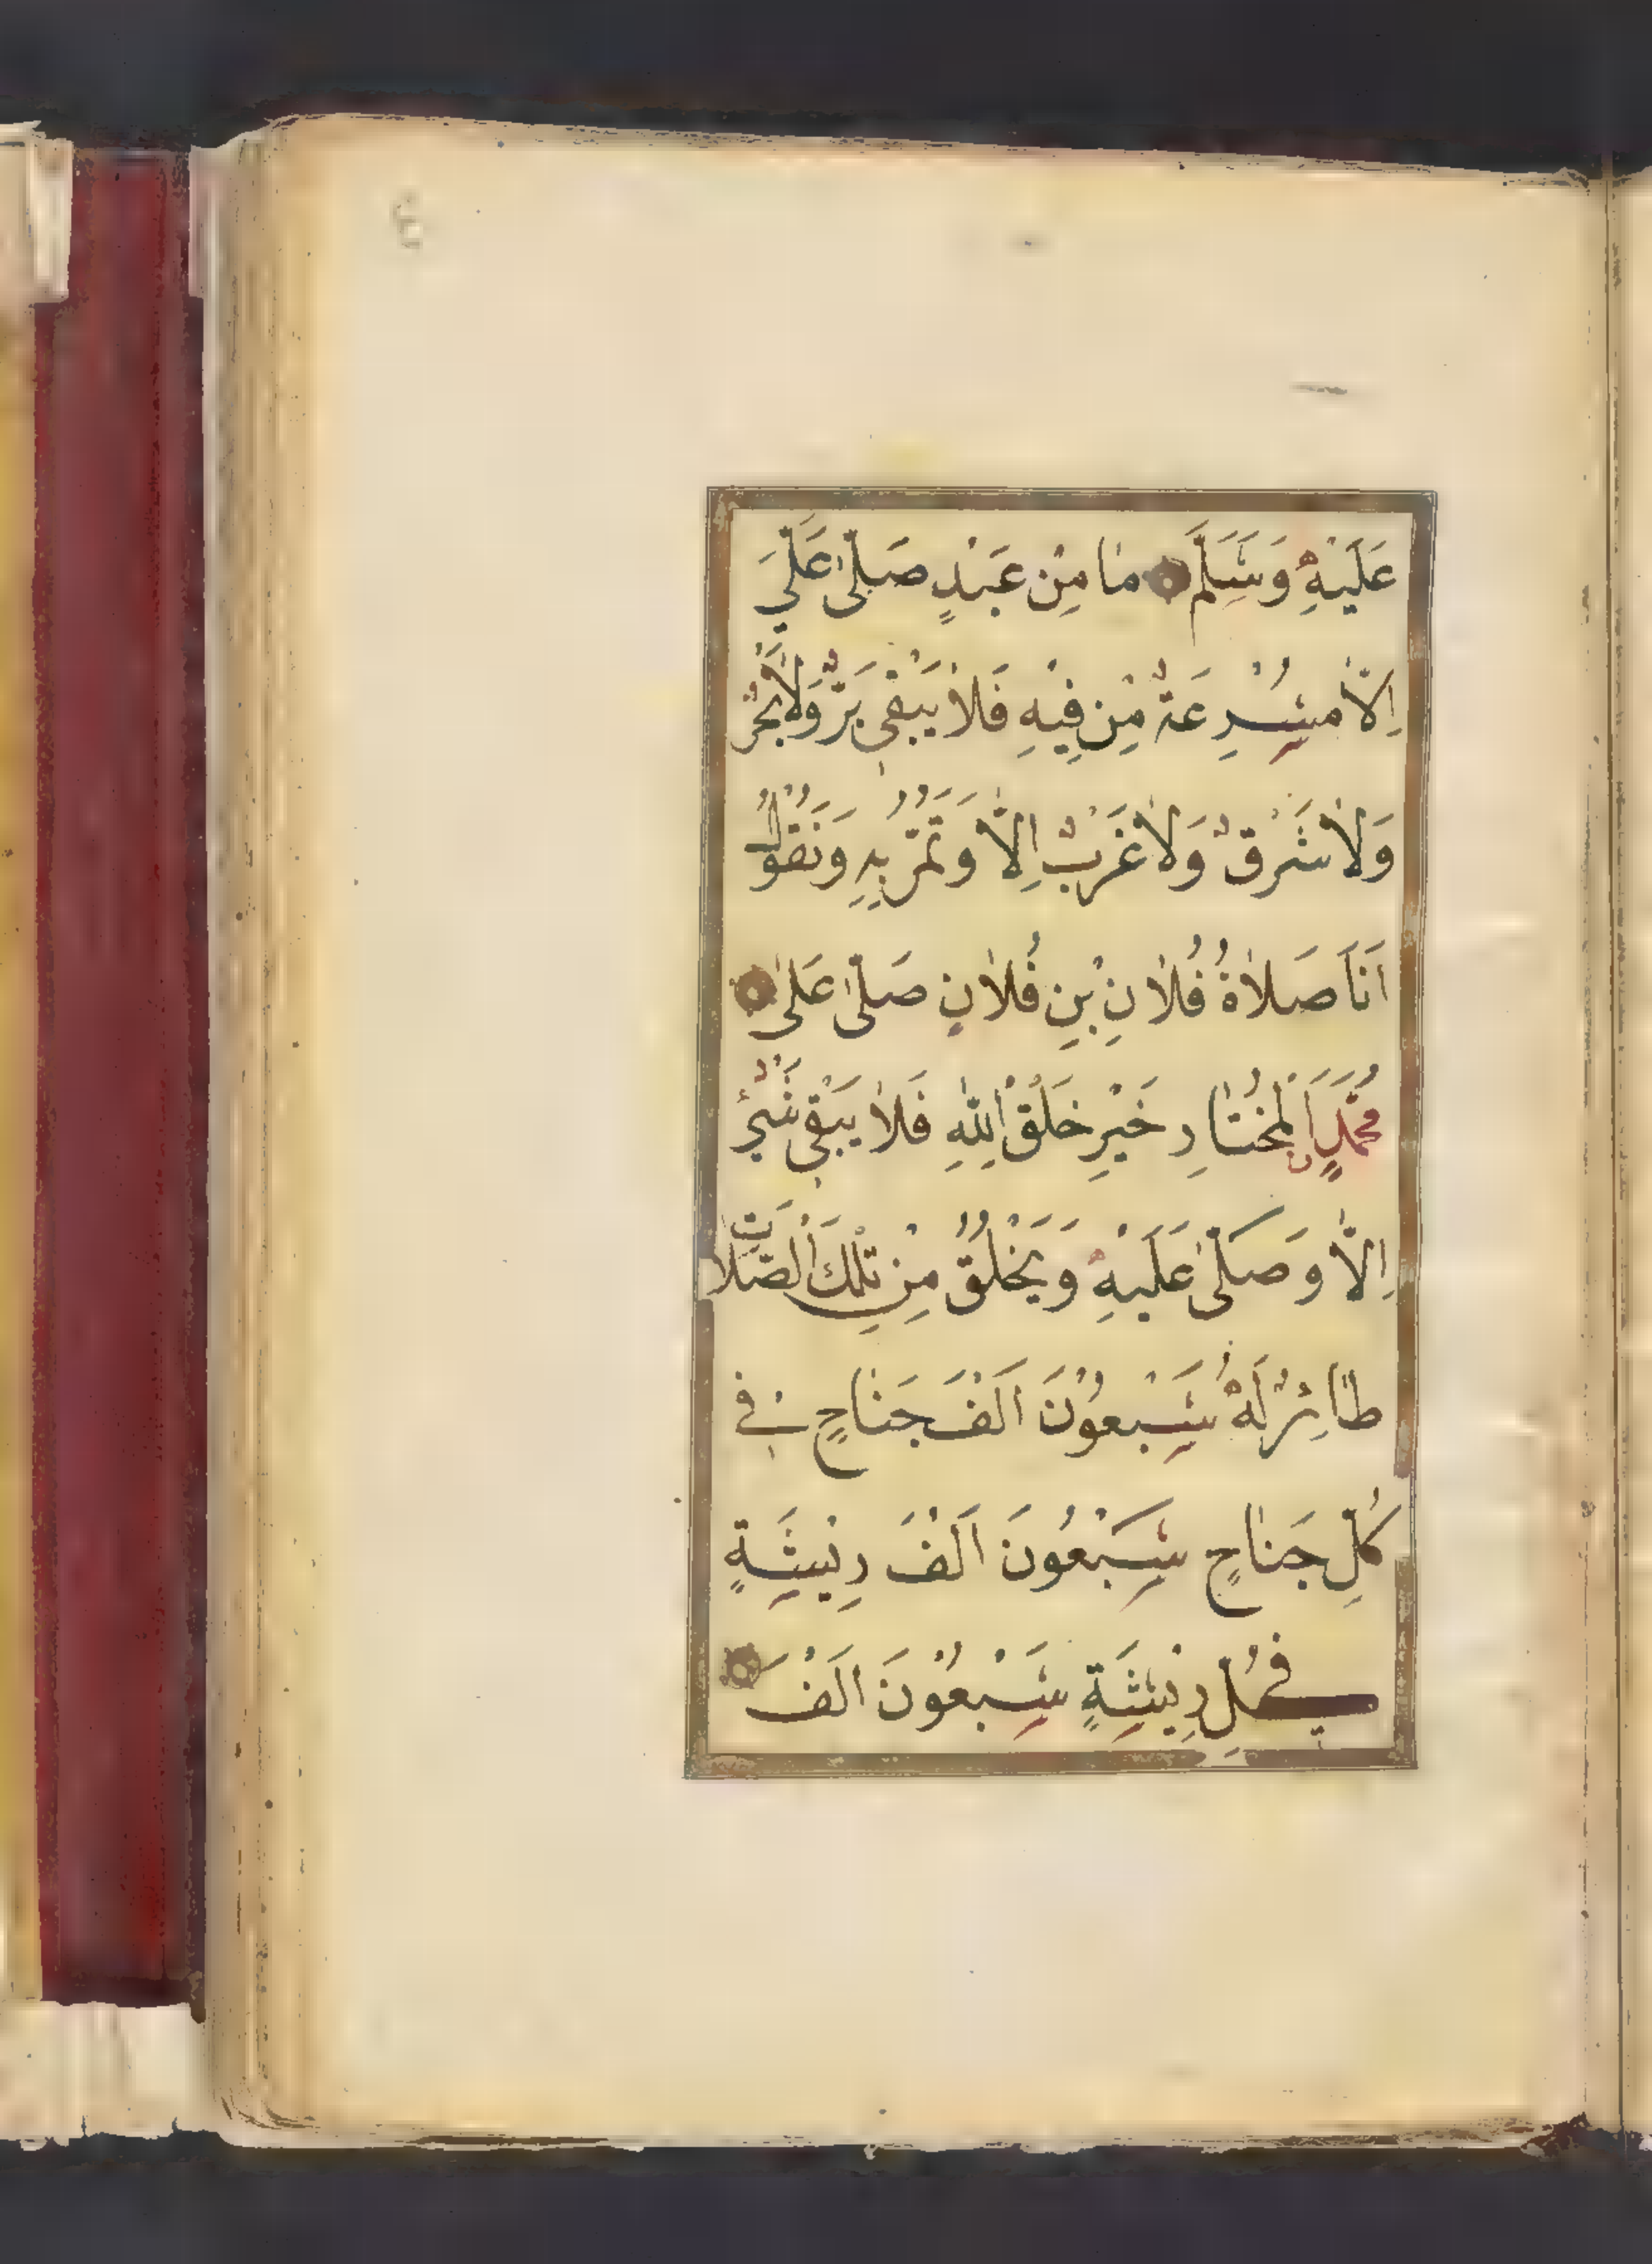 عَلَيْهِ وَسَلَّمَ مَا مِنْ عَبْدٍ صَلَّى عَلَيَّ
اِلَّا مُسْرِعَةٌ مِنْ فِيْهِ فَلاَ يَبْقٰى بَرٌّ وَلَا بَحْرٌ
وَلَا شَرْقٌ وَلَا غَرْبٌ اِلَّا وَتَمُرُّ بِهِ وَتَقُولُ
اَنَا صَلاَةُ فُلَانِ بْنِ فُلَانٍ صَلَّى عَلٰى
مُحَمَّدٍ الْمُخْتَارِ خَيْرِ خَلْقِ اللّٰهِ فَلَا يَبْقٰى شَيْءٌ
اِلَّا وَصَلّٰى عَلَيْهِ وَيَخْلُقُ مِنْ تِلْكَ الصَّلَاةِ
طَائِرٌ لَهُ سَبْعُوْنَ اَلْفَ جَنَاحٍ فِي
كُلِّ جَنَاحٍ سَبْعُونَ اَلْفَ رِيْشَةٍ
فِي كُلِّ رِيْشَةٍ سَبْعُوْنَ اَلْفَ